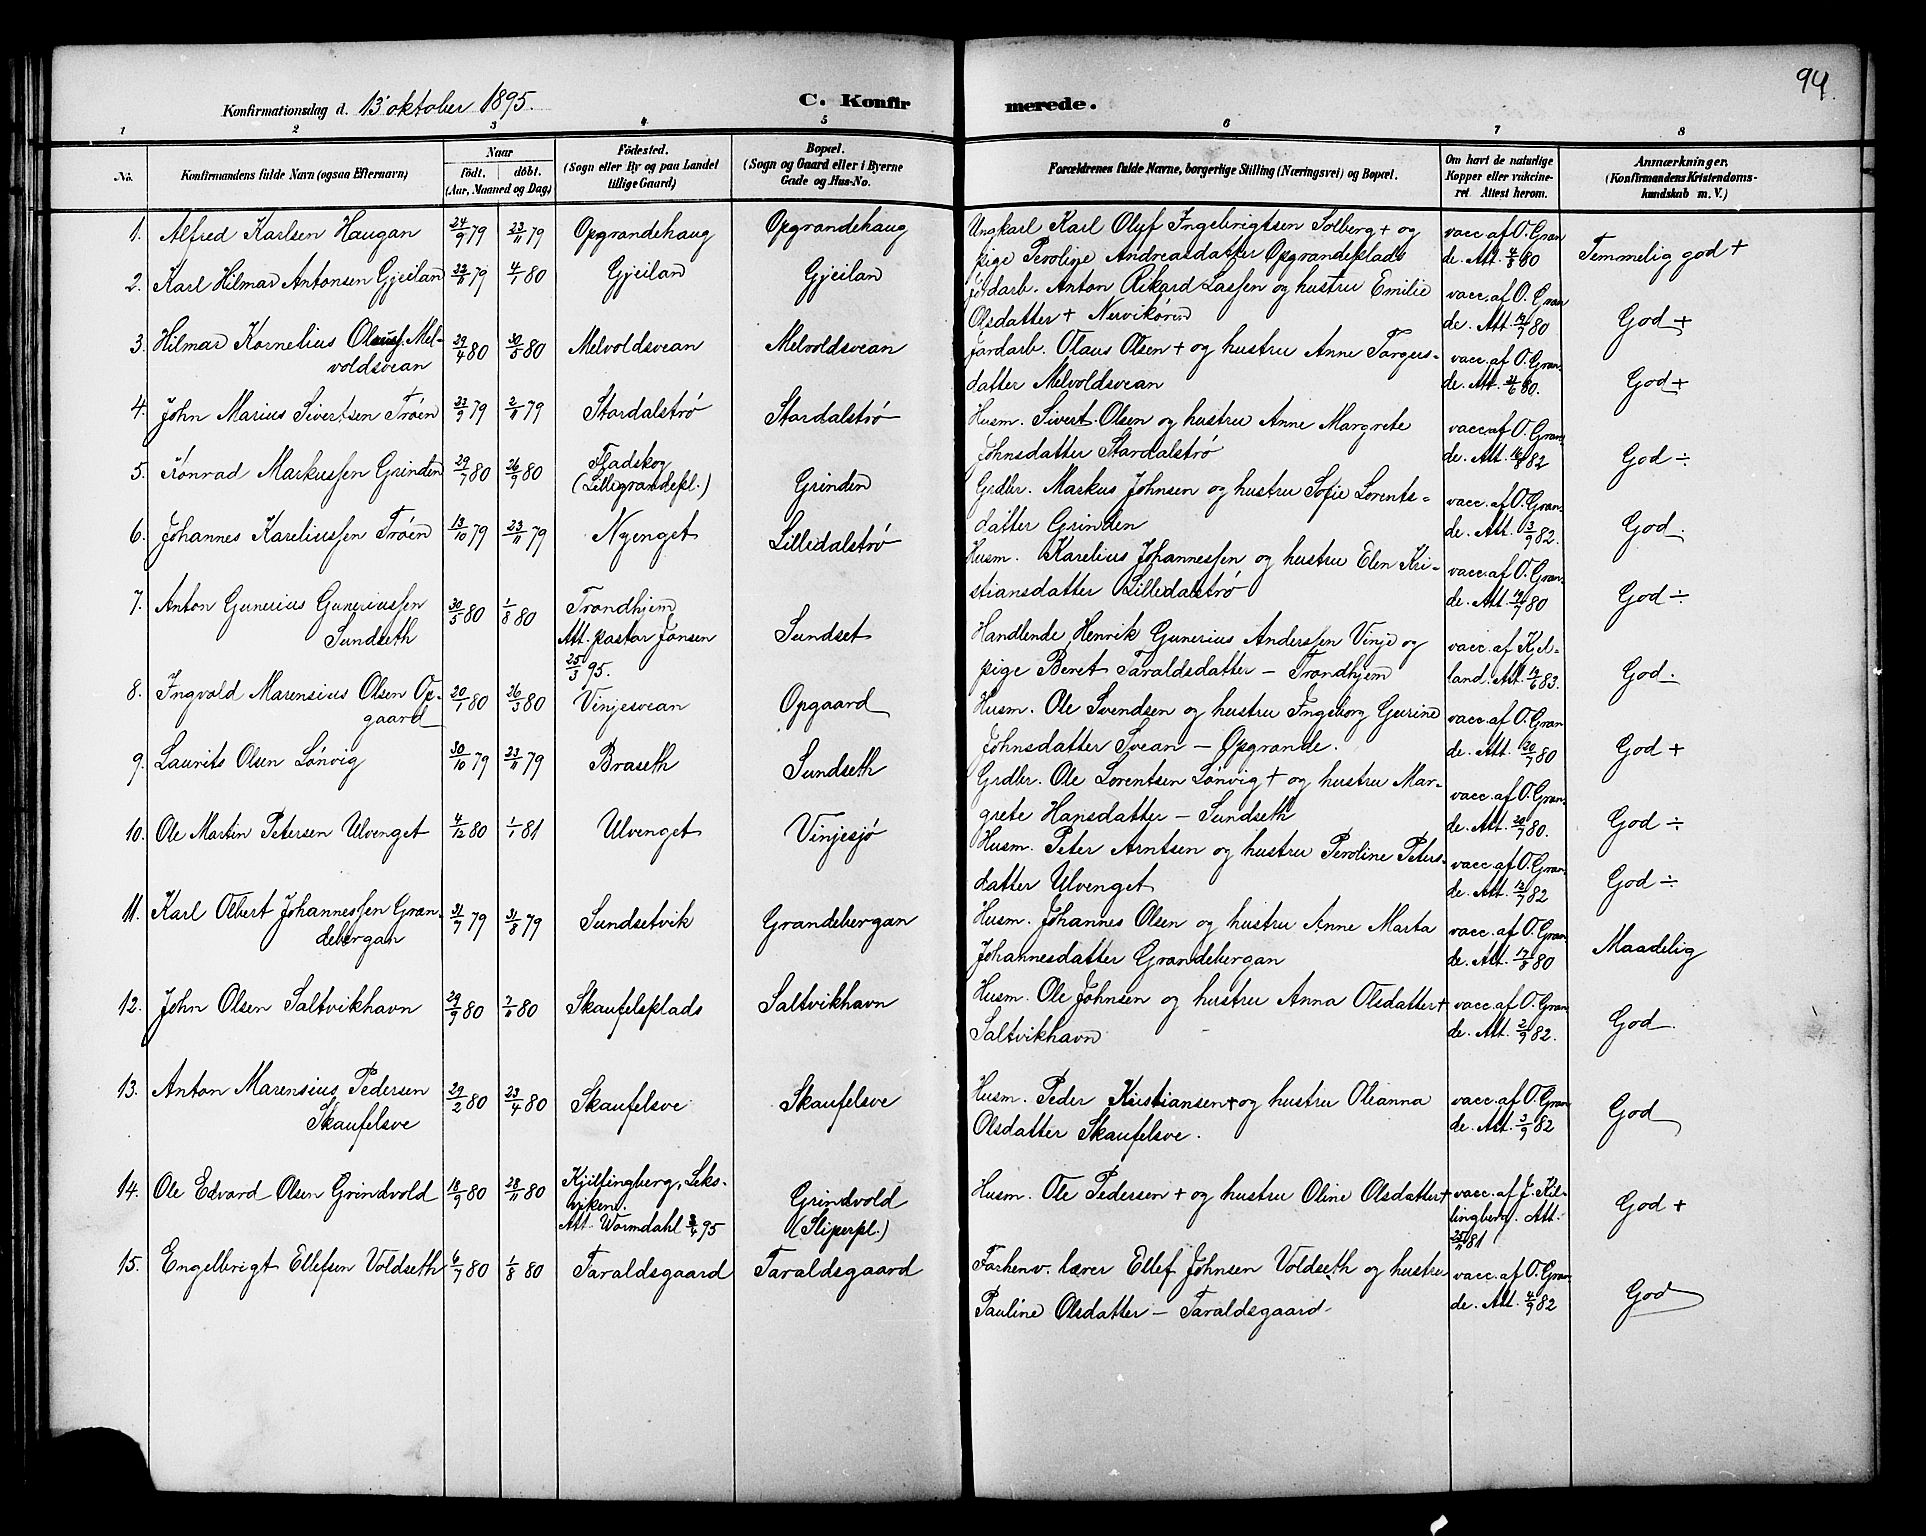 94.
Konfirmationsdag d. 13 oktober 1895.
C. Konfirmerede.
1 2 3 4 5 6 7 8
No.
Konfirmandens fulde Navn (ogsaa Efternavn)
Naar
født. døbt.
(Aar, Maaned og Dag)
Fødested.
(Sogn eller By og paa Landet
tillige Gaard)
Bopæl.
(Sogn og Gaard eller i Byerne
Gade og Hus-No.
Forældrenes fulde Navne, borgerlige Stilling (Næringsvei) og Bopæl.
Om havt de naturlige
Kopper eller vakcine-
ret Attest herom.
Anmærkninger,
(Konfirmandens Kristendoms-
kundskab m. V.)
1. Alfred Karlsen Haugan 24/9 79 23/11 79 Opgrandehaug Opgrandehaug
Ungkarl Karl Oluf Ingebrigtsen Solberg + og
pige Peroline Andreasdatter Opgrandeplads
vacc. af O. Gran
de. Att. 4/8 80
Temmelig god +
2. Karl Hilmar Antonsen Gjeilan 79 4/1 80 Gjeilan Gjeilan
Jordarb. Anton Rikard Lassen og hustru Emilie
Olsdatter + Nervikøren
vacc. af O. Gran
de. Att. 80
God +
3. Hilmar Kornelius Olauss. Mel-
voldsvean 29/4 80 30/5 80 Melvoldsvean Melvoldsvean
Jordarb. Olaus Olsen + og hustru Anne Targus-
datter Melvoldsvean
vacc. af O. Gran-
de. Att. 80.
God +
4. John Marius Sivertsen Trøen 23/9 79 2/11 79 Stordalstrø Stordalstrø
Husm. Sivert Olsen og hustru Anne Margrete
Johnsdatter Stordalstrø
vacc. af O. Gran
de. Att. 82
God ÷
5. Konrad Markussen Grinden 29/7 80 26/9 80 Fladskog
(Lillegrandepl.) Grinden
Grdbr. Markus Johnsen og hustru Sofie Lorents-
datter Grinden
vacc. af O. Gran.
de. Att. 3/9 82.
God.
6. Johannes Kareliussen Trøen 13/10 79 23/11 79 Nyenget Lilledalstrø
Husm. Karelius Johannessen og hustru Elen Kri-
stiansdatter Lilledalstrø
vacc. af O. Gran-
de. Att. 80
God ÷
7. Anton Gunerius Guneriussen
Sundseth 30/5 80 1/8 80 Trondhjem
Att. pastor Jonsen
25/3 95. Sundset
Handlende Henrik Gunerius Anderssen Vinje og
pige Beret Taraldsdatter – Trondhjem
vacc. af Kjel-
land. Att. 83.
God.
8. Ingvald Marensius Olsen Op-
gaard 20/1 80 26/3 80 Vinjesvean Opgaard
Husm. Ole Svendsen og hustru Ingeborg Gurine
Johnsdatter Svean – Opgrande.
vacc. af O. Gran
de. Att. 20/7 80
God +
9. Laurits Olsen Lønvig 30/10 79 23/11 79 Braseth Sundseth
Grdbr. Ole Lorentsen Lønvig + og hustru Mar-
grete Hansdatter – Sundseth
vacc. af O. Gran.
de. Att. 20/7 80.
God ÷
10. Ole Martin Petersen Ulvenget 4/12 80 1/1 81 Ulvenget Vinjesjø
Husm. Peter Arntsen og hustru Peroline Peters-
datter Ulvenget
vacc. af O. Gran
de. Att. 12/7 82
God ÷
11. Karl Olbert Johannessen Gran-
debergan 31/7 79 31/8 79 Sundsetvik Grandebergan
Husm. Johannes Olsen og hustru Anne Marta
Johannesdatter Grandebergan
vacc. af O. Gran
de. Att. 17/8 80
Maadelig
12. John Olsen Saltvikhavn 29/9 80 7/11 80 Skaufelsplads Saltvikhavn
Husm. Ole Johnsen og hustru Anna Olsdatter +
Saltvikhavn
vacc. af O. Gran
de. Att. 2/9 82.
God.
13. Anton Marensius Pedersen
Skaufelsve 29/2 80 23/4 80 Skaufelsve Skaufelsve
Husm. Peder Kristiansen + og hustru Oleanna
Olsdatter Skaufelsve.
vacc. af O. Gran
de. Att. 3/9 82
God
14. Ole Edvard Olsen Grindvold 18/9 80 28/11 80 Kjillingberg, Leks-
viken.
Att. Wormdahl 95 Grindvold
(Sliperpl.)
Husm. Ole Pedersen + og hustru Oline Olsdatter +
vacc. af J. Kil-
lingberg. Att.
81
God +
15. Engelbrigt Ellefsen Voldseth 6/7 80 1/8 80 Taraldsgaard Taraldsgaard
Forhenv. lærer Ellef Johnsen Voldseth og hustru
Pauline Olsdatter – Taraldsgaard
vacc. af O. Gran
de. Att. 4/9 82
God